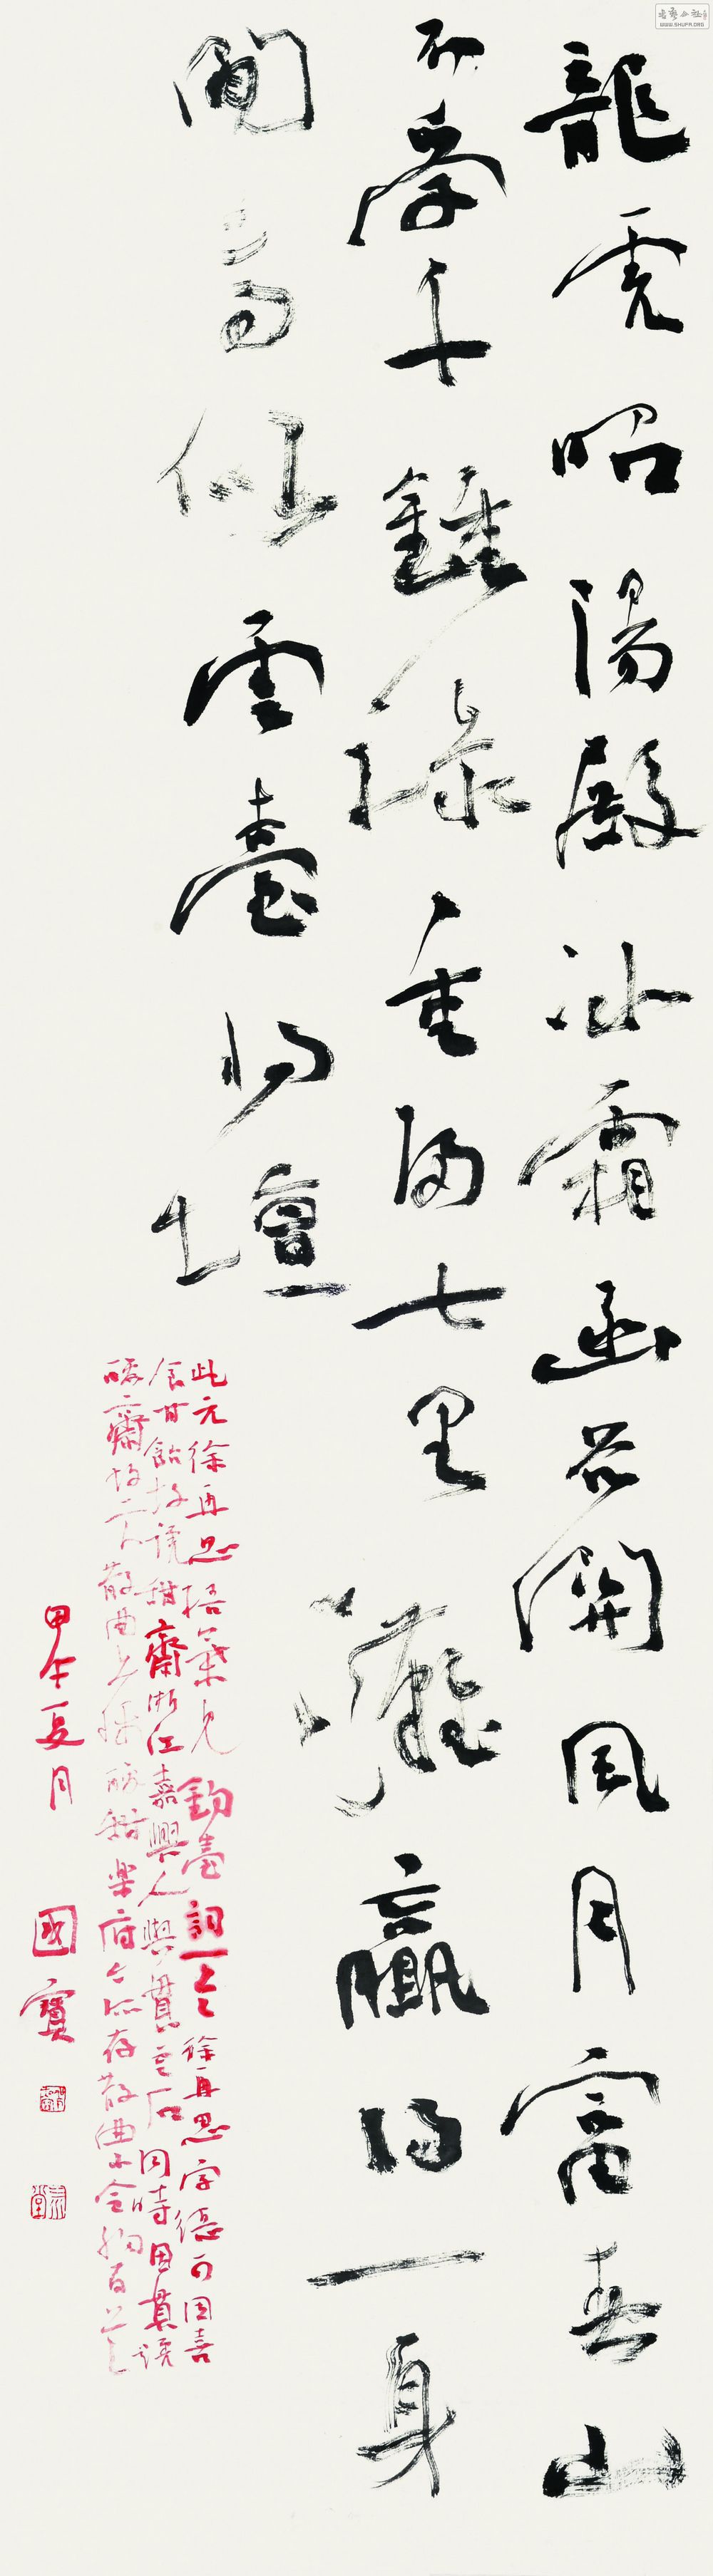 龍虎昭陽殿冰霜函谷關風月富春山
不受千鍾祿重歸七里灘贏得一身
閒高似雲臺將壇
此元徐再思梧葉兒釣臺詞一令徐再思字德可因喜
食甘飴故號甜齋浙江嘉興人與貫雲石同時因貫號
酸齋故二人散曲上稱酸甜樂府今所存散曲小令約百首
甲午夏月
國寶
WWW.SHUFA.ORG